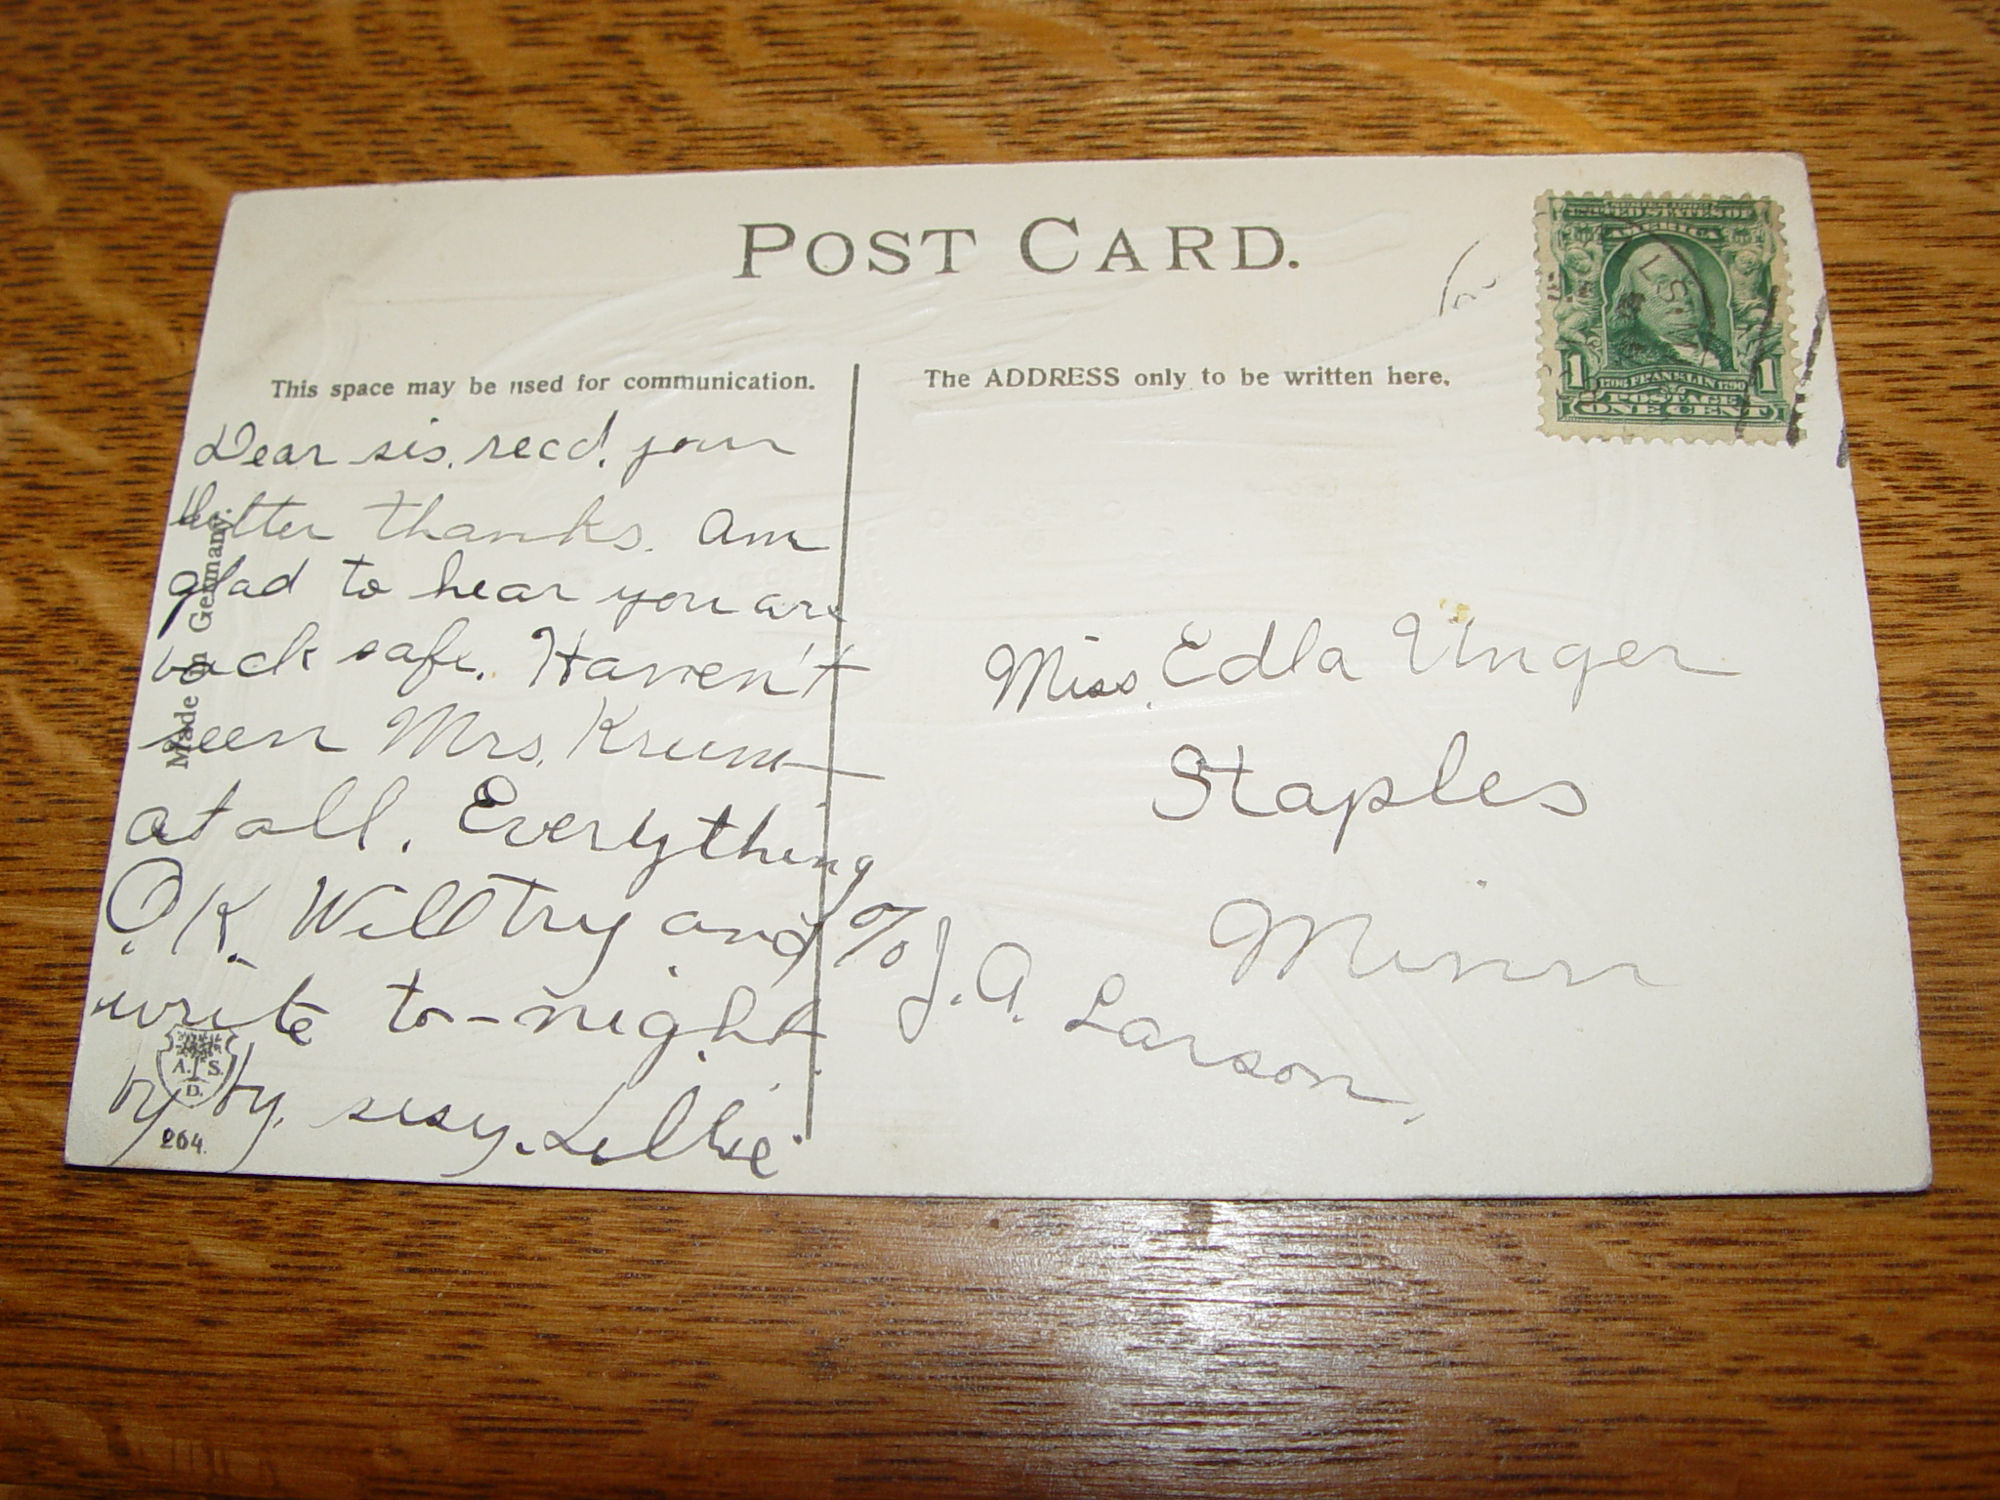 POST CARD.
This space may be used for communication.
The ADDRESS only to be written here.
SERIES 1902
UNITED STATES OF
AMERICA
1 1
1706 FRANKLIN 1790
POSTAGE
ONE CENT
Dear sis. recd. your
letter thanks. Am
glad to hear you are
back safe. Haven't
seen Mrs. Krum
at all. Everything
O.K. Will try and
write to-night
by by. sisy. Lillie
Made in Germany.
A. S.
D.
264.
Miss. Edla Unger
Staples
Minn
c/o J. A. Larson.